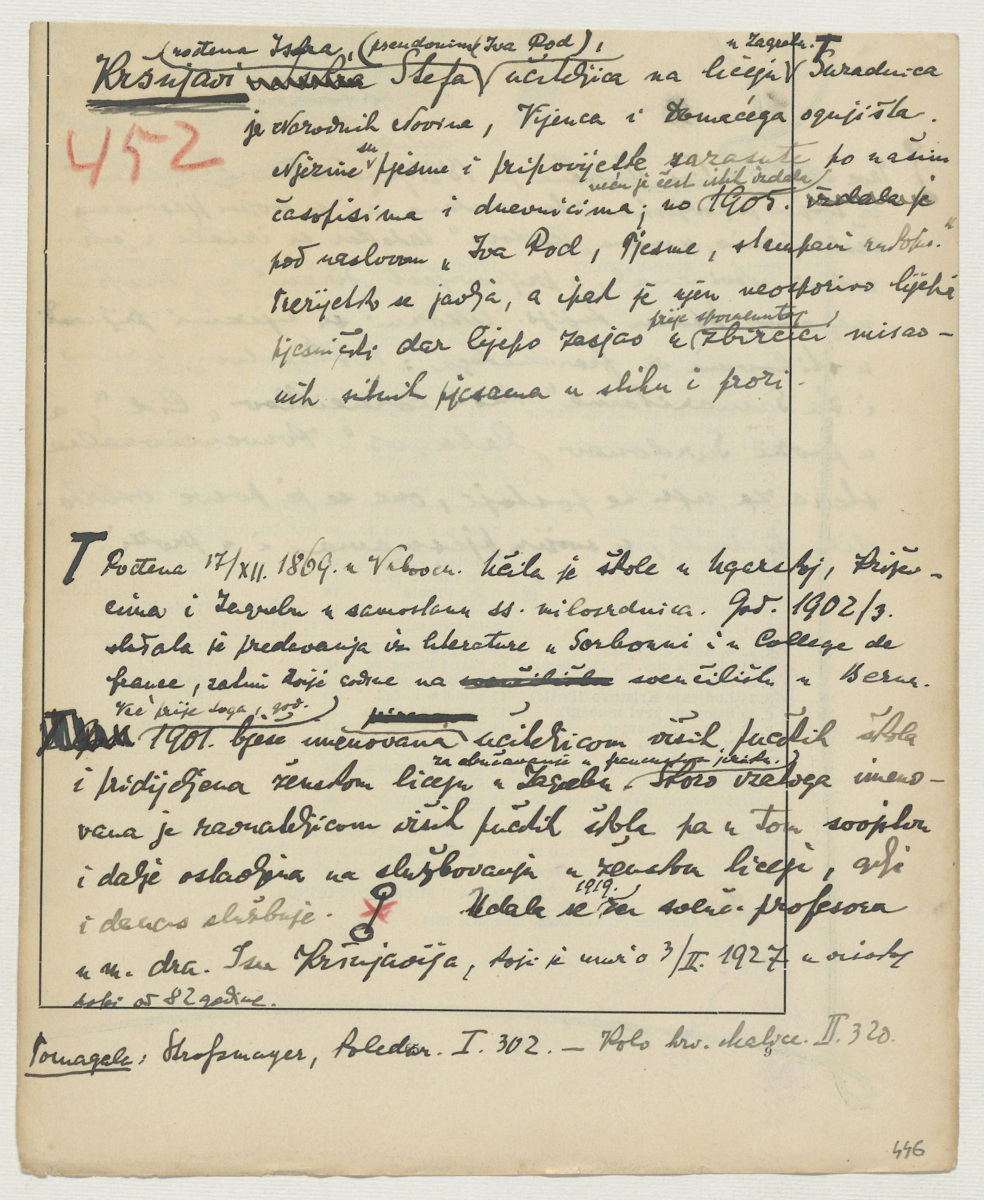 (rođena Iskra, (pseudonim Iva Rod), u Zagrebu. T
Kršnjavi Štefa učiteljica na liceju Suradnica
452
je Narodnih Novina, Vijenca i Domaćega ognjišta.
Njezine su pjesme i pripovijetke rasasute po našim
većnje čest istih izdala
časopisima i dnevnicima; no 1905. izdala je
pod naslovom „Iva Rod, Pjesme, štampani
se javlja, a ipak je njen neosporivo lijepi
prije spomenutoj
pjesnički dar lijepo zasjao u zbircici misao-
nih sitnih pjesama u stihu i prozi.
T Rođena 17/XII. 1869. u Vrbovcu. Učila je škole u Ugarskoj, Križev-
cima i Zagrebu u samostanu ss. milosrdnica. God. 1902/3.
slušala je predavanja iz literature u Sorbonni i u College de
france, zatim dvije godine na sveučilištu u Bernu.
Već prije toga, god.
1901. bješe imenovana učiteljicom viših pučkih škola
za obučavanje u francuskom jeziku.
i pridijeljena ženskom liceju u Zagrebu. Skoro iza toga imeno-
vana je ravnateljicom viših pučkih škola pa u tom svojstvu
i dalje ostavljena na službovanju u ženskom liceju, gdje
i danas službuje. Udala se 1919. za sveuč. profesora
u m. dra. Isu Kršnjavija, koji je umro 3/II. 1927 u visokoj
dobi od 82 godine.
Pomagala: Strossmayer, koledar. I. 302. — Kolo hrv. II. 320.
446